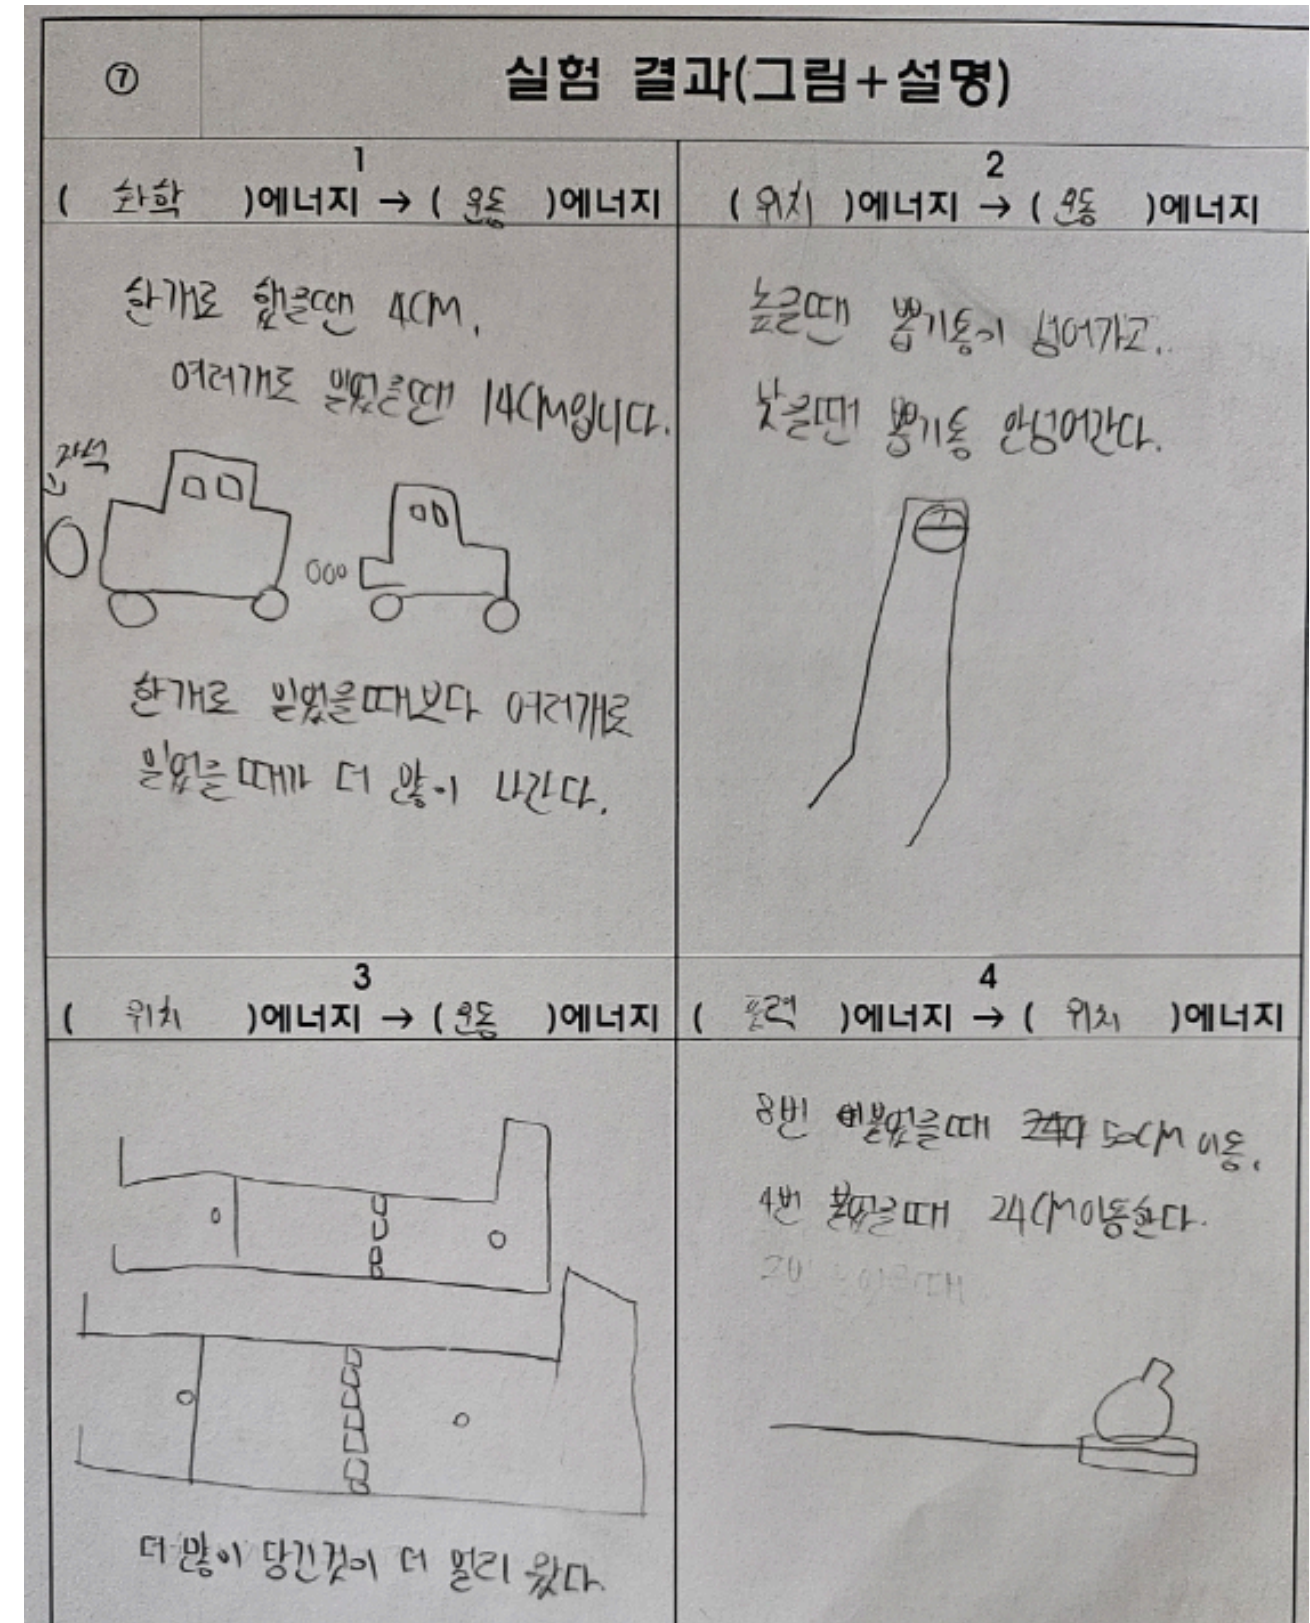 ⑦ 실험 결과(그림+설명)
1
( 화학 )에너지 → ( 운동 )에너지
한개로 했을땐 4CM,
여러개로 밀었을땐 14CM입니다.
자석
한개로 밀었을때보다 여러개로
밀었을때가 더 많이 나간다.
2
( 위치 )에너지 → ( 운동 )에너지
높을땐 뽑기통이 넘어가고,
낮을땐 뽑기통 안넘어간다.
3
( 위치 )에너지 → ( 운동 )에너지
더 많이 당긴것이 더 멀리 왔다.
4
( 풍력 )에너지 → ( 위치 )에너지
8번 불었을때 50CM 이동,
4번 불었을때 24CM이동한다.